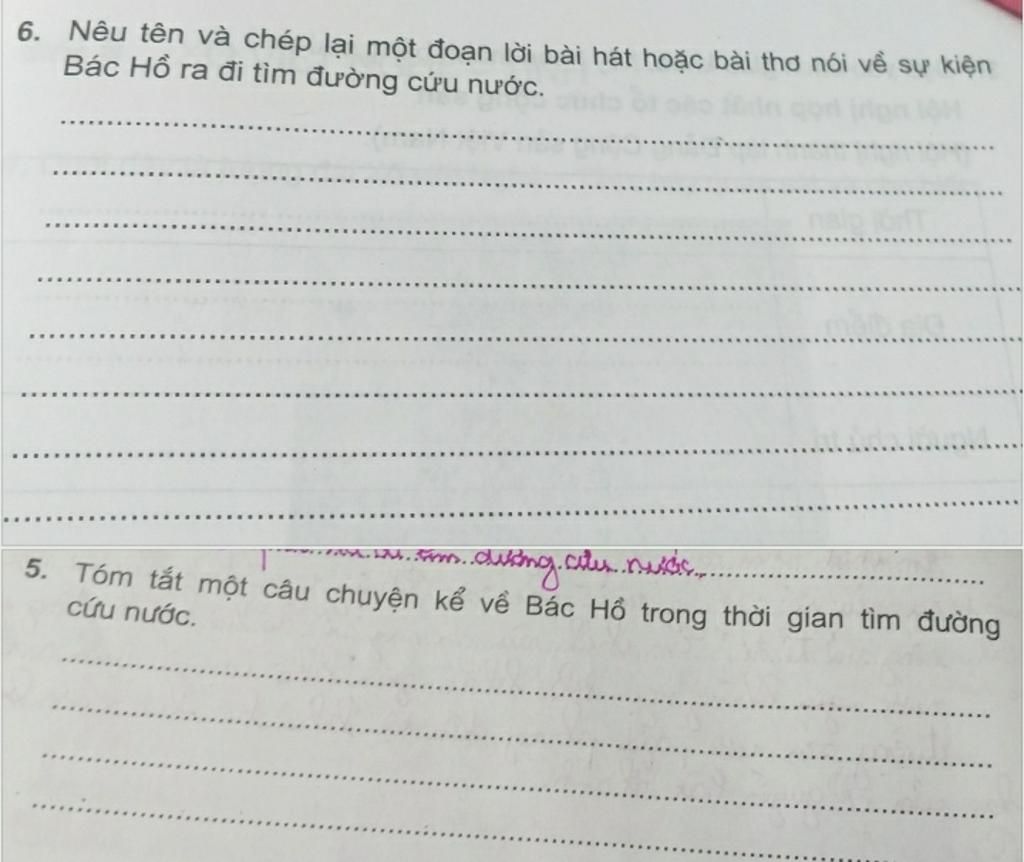 6. Nêu tên và chép lại một đoạn lời bài hát hoặc bài thơ nói về sự kiện
Bác Hồ ra đi tìm đường cứu nước.
tìm đường cứu nước.
5. Tóm tắt một câu chuyện kể về Bác Hồ trong thời gian tìm đường
cứu nước.